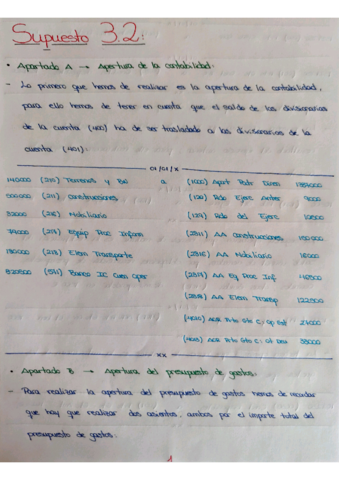 Supuesto 3.2:
• Apartado A → Apertura de la contabilidad.
- Lo primero que hemos de realizar es la apertura de la contabilidad,
para ello hemos de tener en cuenta que el saldo de las divisionarias
de la cuenta (400) ha de ser trasladado a las divisionarias de la
cuenta (401):
01/01/X
(210) Terrenos y BN a (1000) Aport Patr Diner
(211) Construcciones (120) Rdo Ejerc Anter 9000
(216) Mobiliario (129) Rdo del Ejerc
(217) Equip Proc Inform (2811) AA Construcciones
(218) Elem Transporte (2816) AA Mobiliario
(571) Banco IC Cuen Oper (2817) AA Eq Proc Inf
(2818) AA Elem Transp
(4010) Acr Pto Gto C: Op Est
(4013) Acr Pto Gto C: Ot Deu
XX
• Apartado B → Apertura del presupuesto de gastos:
- Para realizar la apertura del presupuesto de gastos hemos de recordar
que hay que realizar dos asientos, ambos por el importe total del
presupuesto de gastos:
1